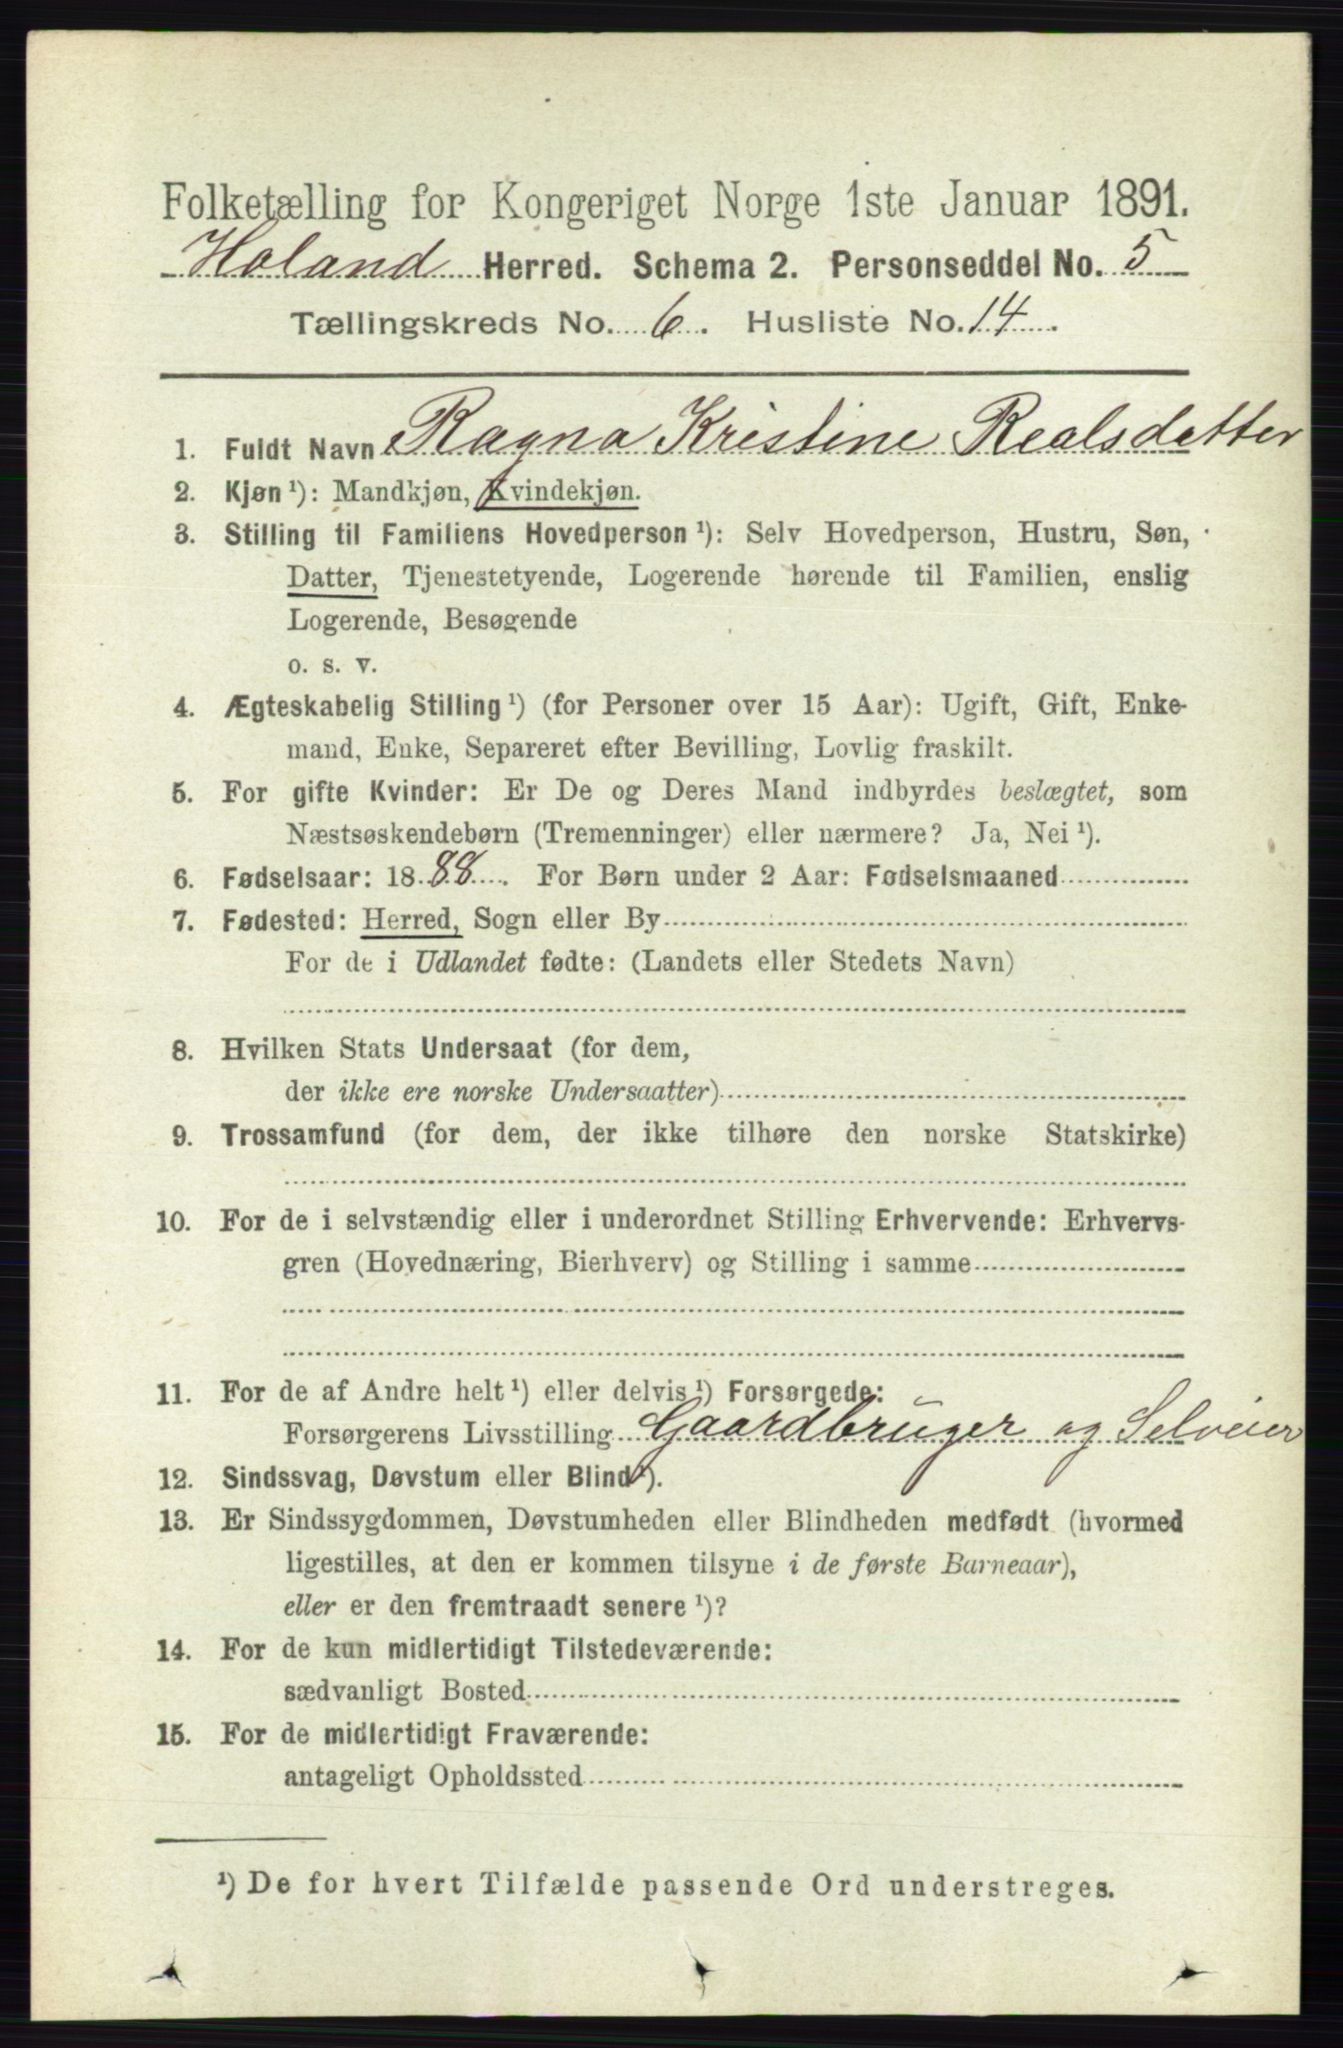 Folketælling for Kongeriget Norge 1ste Januar 1891.
Høland Herred. Schema 2. Personseddel No. 5
Tællingskreds No. 6. Husliste No. 14.
1. Fuldt Navn Ragna Kristine Realsdatter
2. Kjøn ¹): Mandkjøn, Kvindekjøn.
3. Stilling til Familiens Hovedperson ¹): Selv Hovedperson, Hustru, Søn,
Datter, Tjenestetyende, Logerende hørende til Familien, enslig
Logerende, Besøgende
o. s. v.
4. Ægteskabelig Stilling ¹) (for Personer over 15 Aar): Ugift, Gift, Enke-
mand, Enke, Separeret efter Bevilling, Lovlig fraskilt.
5. For gifte Kvinder: Er De og Deres Mand indbyrdes beslægtet, som
Næstsøskendebørn (Tremenninger) eller nærmere? Ja, Nei ¹).
6. Fødselsaar: 1888. For Børn under 2 Aar: Fødselsmaaned
7. Fødested: Herred, Sogn eller By
For de i Udlandet fødte: (Landets eller Stedets Navn)
8. Hvilken Stats Undersaat (for dem,
der ikke ere norske Undersaatter)
9. Trossamfund (for dem, der ikke tilhøre den norske Statskirke)
10. For de i selvstændig eller i underordnet Stilling Erhvervende: Erhvervs-
gren (Hovednæring, Bierhverv) og Stilling i samme
11. For de af Andre helt ¹) eller delvis ¹) Forsørgede:
Forsørgerens Livsstilling Gaardbruger og Selveier
12. Sindssvag, Døvstum eller Blind ¹).
13. Er Sindssygdommen, Døvstumheden eller Blindheden medfødt (hvormed
ligestilles, at den er kommen tilsyne i de første Barneaar),
eller er den fremtraadt senere ¹)?
14. For de kun midlertidigt Tilstedeværende:
sædvanligt Bosted
15. For de midlertidigt Fraværende:
antageligt Opholdssted
¹) De for hvert Tilfælde passende Ord understreges.